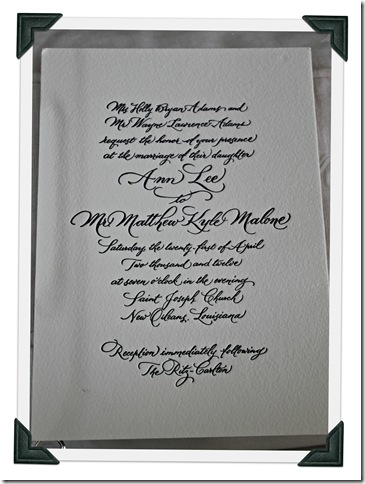 Mrs Holly Bryan Adams and
Mr Wayne Lawrence Adams
request the honor of your presence
at the marriage of their daughter
Ann Lee
to
Mr Matthew Kyle Malone
Saturday, the twenty-first of April
Two thousand and twelve
at seven o'clock in the evening
Saint Joseph Church
New Orleans, Louisiana
Reception immediately following
The Ritz-Carlton